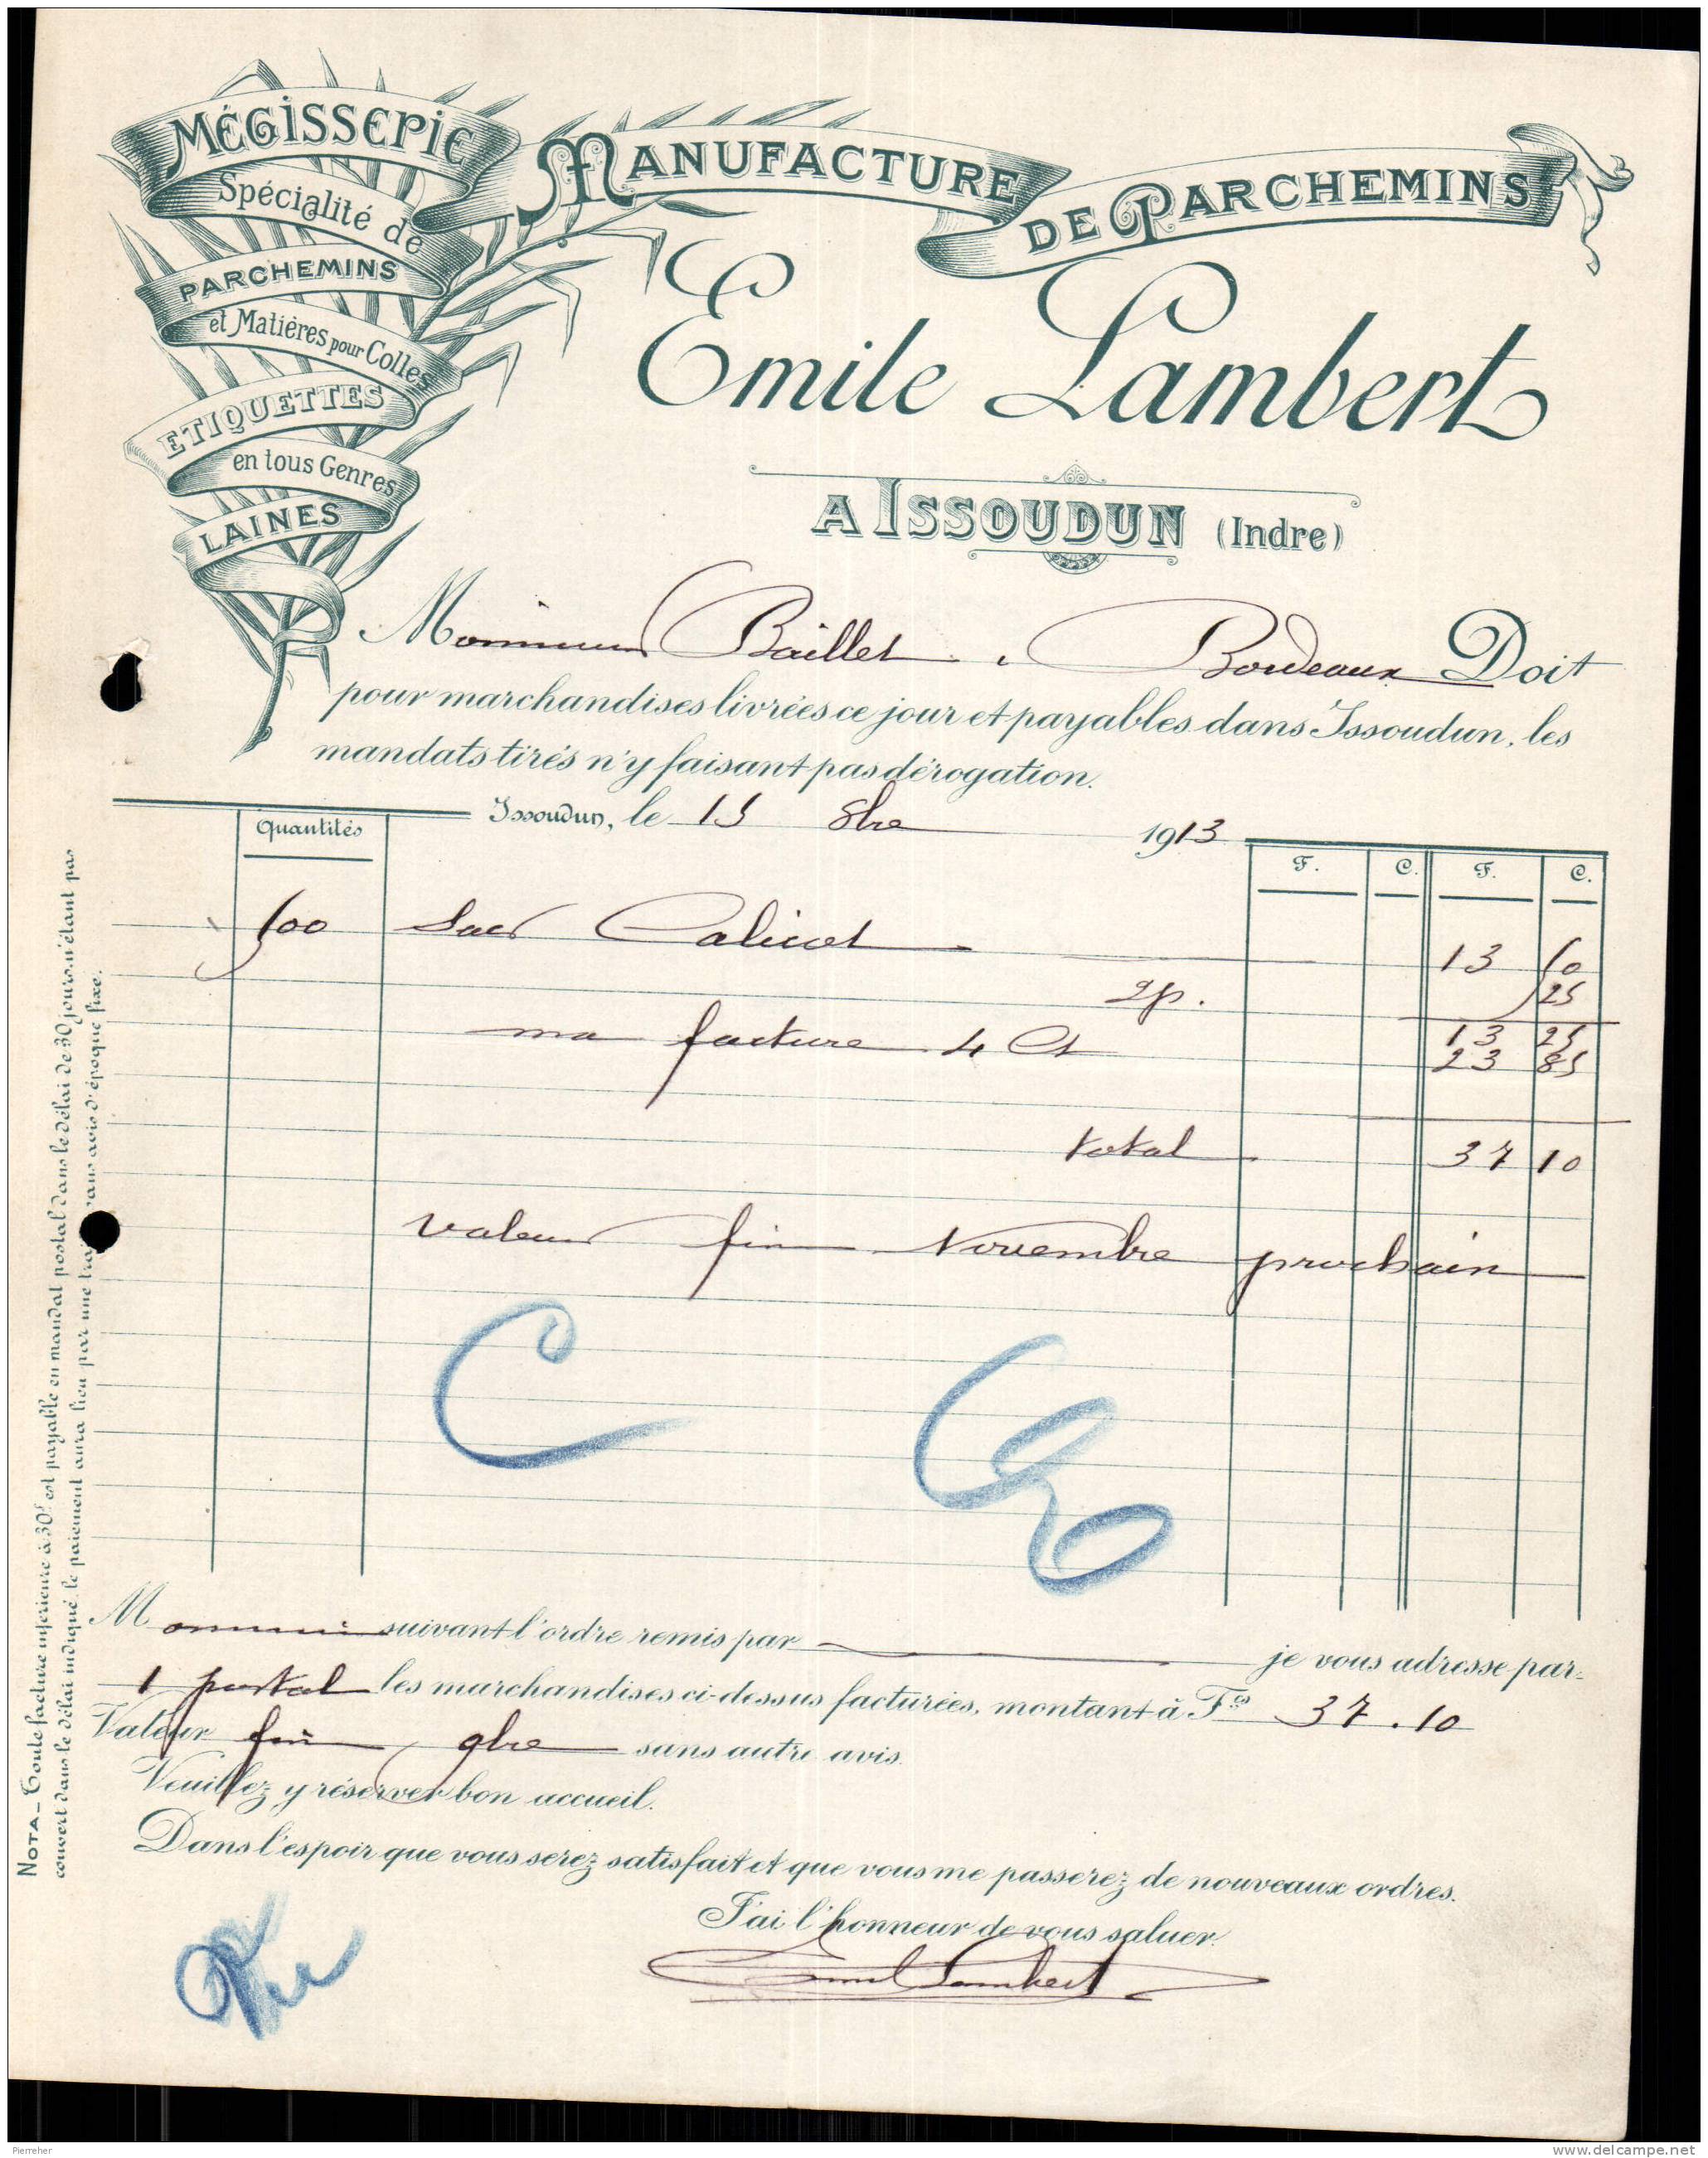 MÉGISSERIE
Spécialité de
PARCHEMINS
et Matières pour Colles
ETIQUETTES
en tous Genres
LAINES
MANUFACTURE DE PARCHEMINS
Emile Lambert
A ISSOUDUN (Indre)
Monsieur Baillet à Bordeaux Doit
pour marchandises livrées ce jour et payables dans Issoudun, les
mandats tirés n'y faisant pas dérogation.
Issoudun, le 15 8bre 1913
Quantités F. C. F. C.
500 Sacs Calicot 13 50
2p. 25
13 25
ma facture 4 Ct 23 85
total 37 10
valeur fin Novembre prochain
Monsieur suivant l'ordre remis par je vous adresse par
1 postal les marchandises ci-dessus facturées, montant à Fcs 37.10
Valeur fin 9bre sans autre avis.
Veuillez y réserver bon accueil.
Dans l'espoir que vous serez satisfait et que vous me passerez de nouveaux ordres.
J'ai l'honneur de vous saluer.
Emile Lambert
NOTA_ Toute facture inférieure à 30f est payable en mandat postal dans le délai de 30 jours, n'étant pas
couvert dans le délai indiqué, le paiement aura lieu par une sans avis d'époque fixe.
Pierreher
www.delcampe.net